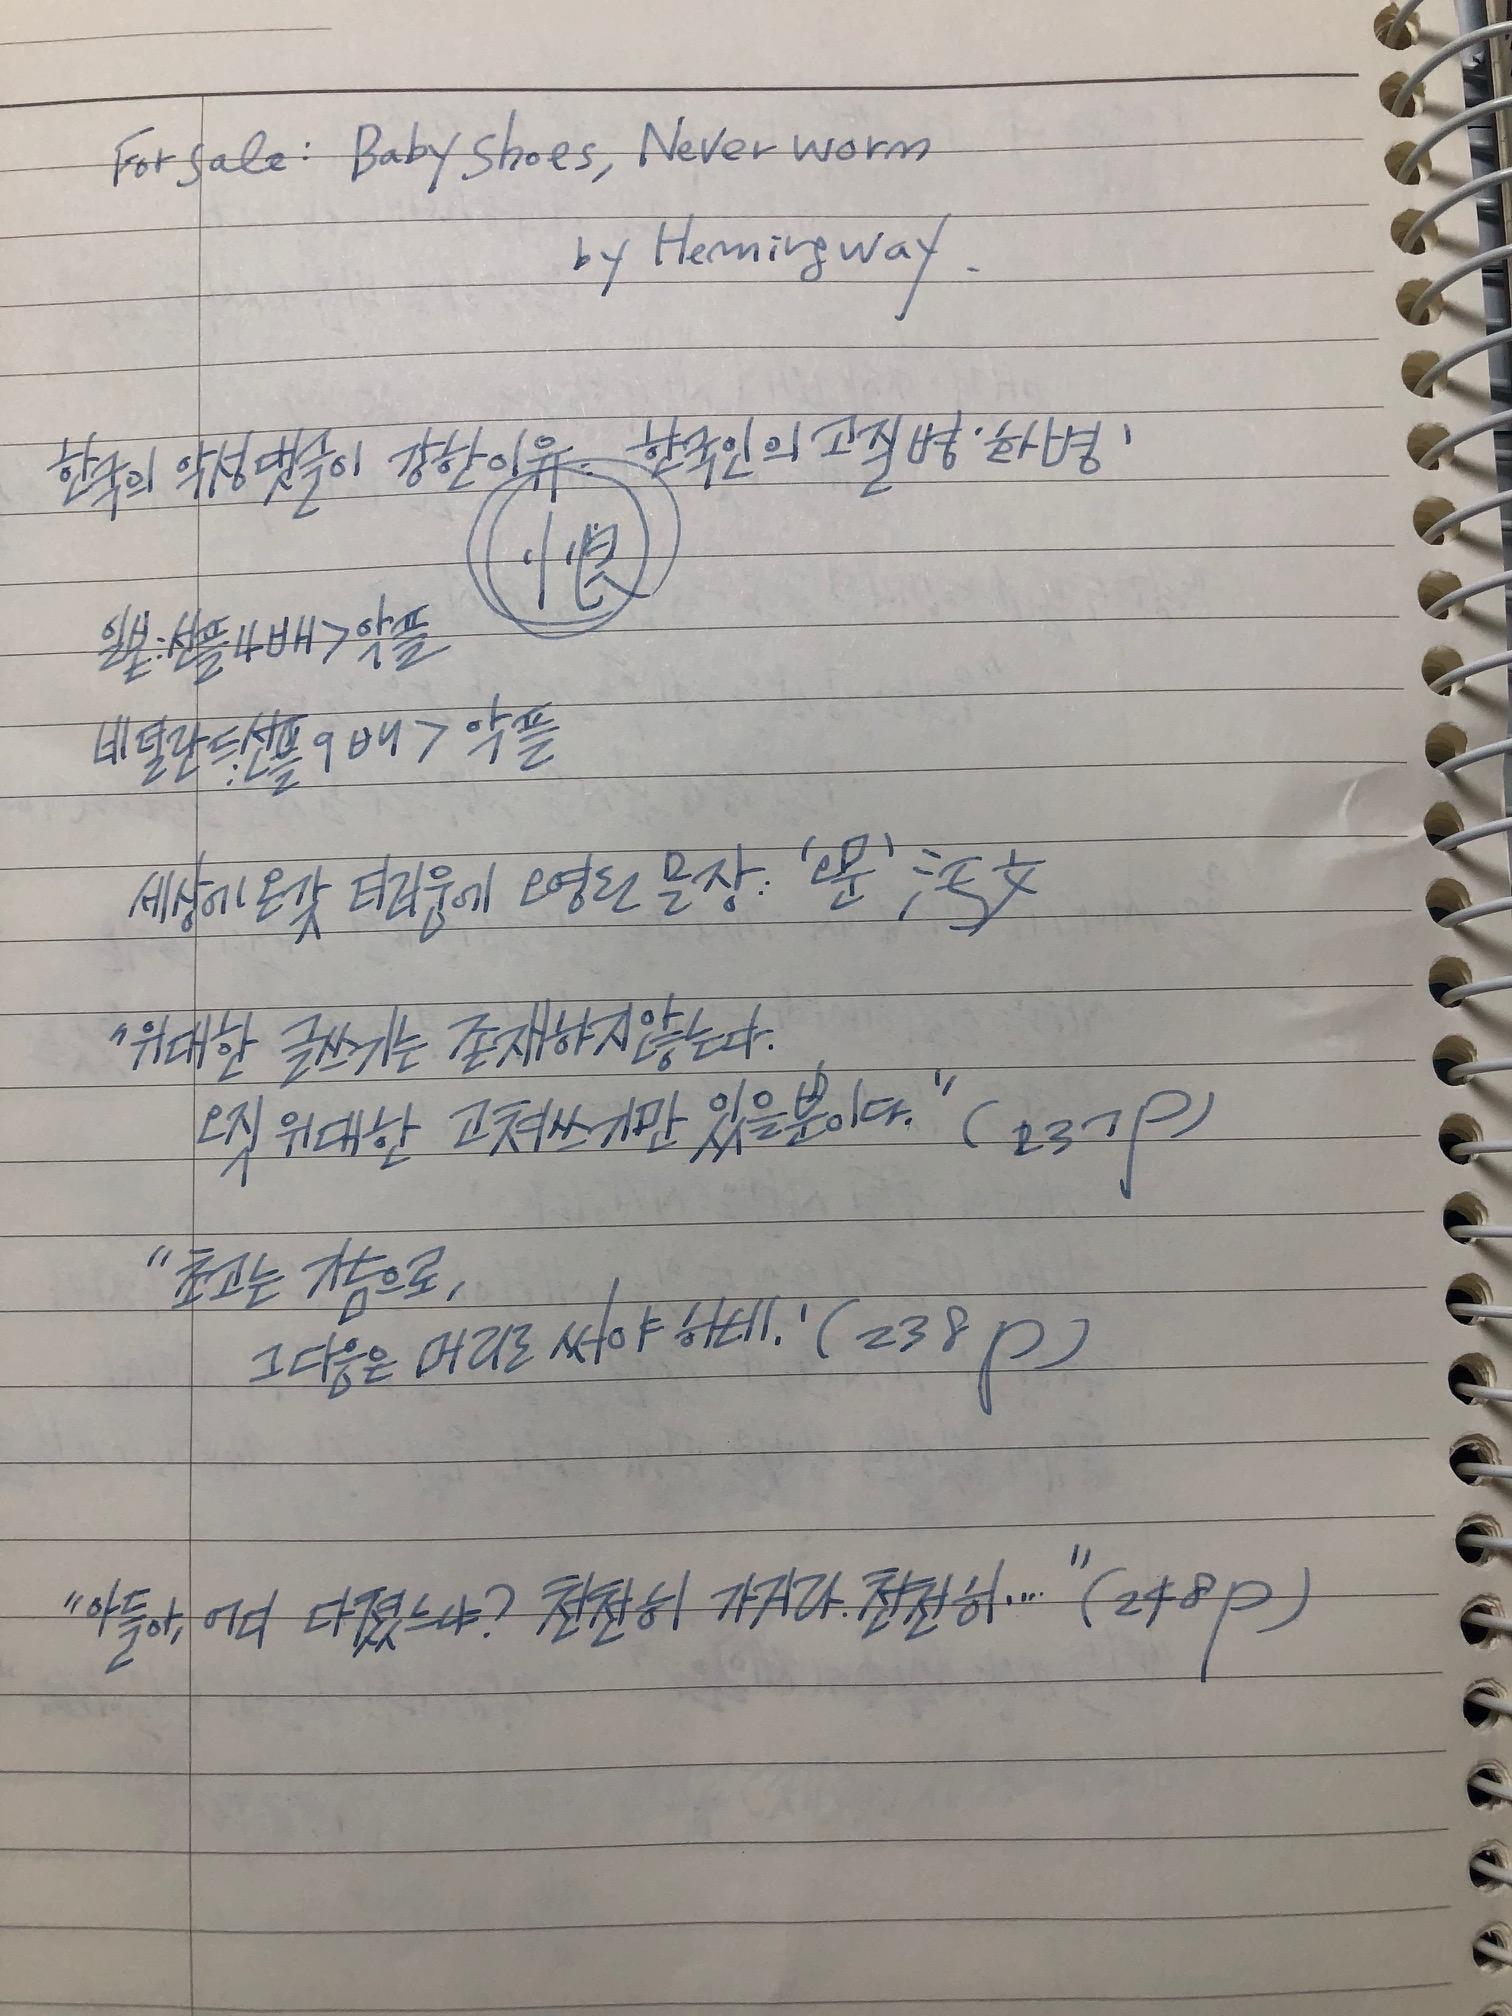 For sale: Baby shoes, Never worm
by Hemingway.
한국의 악성댓글이 강한이유. 한국인의 고질병 '화병'
恨
일본:선플4배>악플
네덜란드:선플9배>악플
세상에 온갖 더러움에 오염된 문장: '오문' 汚文
"위대한 글쓰기는 존재하지않는다.
오직 위대한 고쳐쓰기만 있을뿐이다." (237p)
"초고는 가슴으로,
그다음은 머리로 써야 하네.' (238p)
"아들아, 어디 다쳤느냐? 찬찬히 가거라. 찬찬히…" (248p)